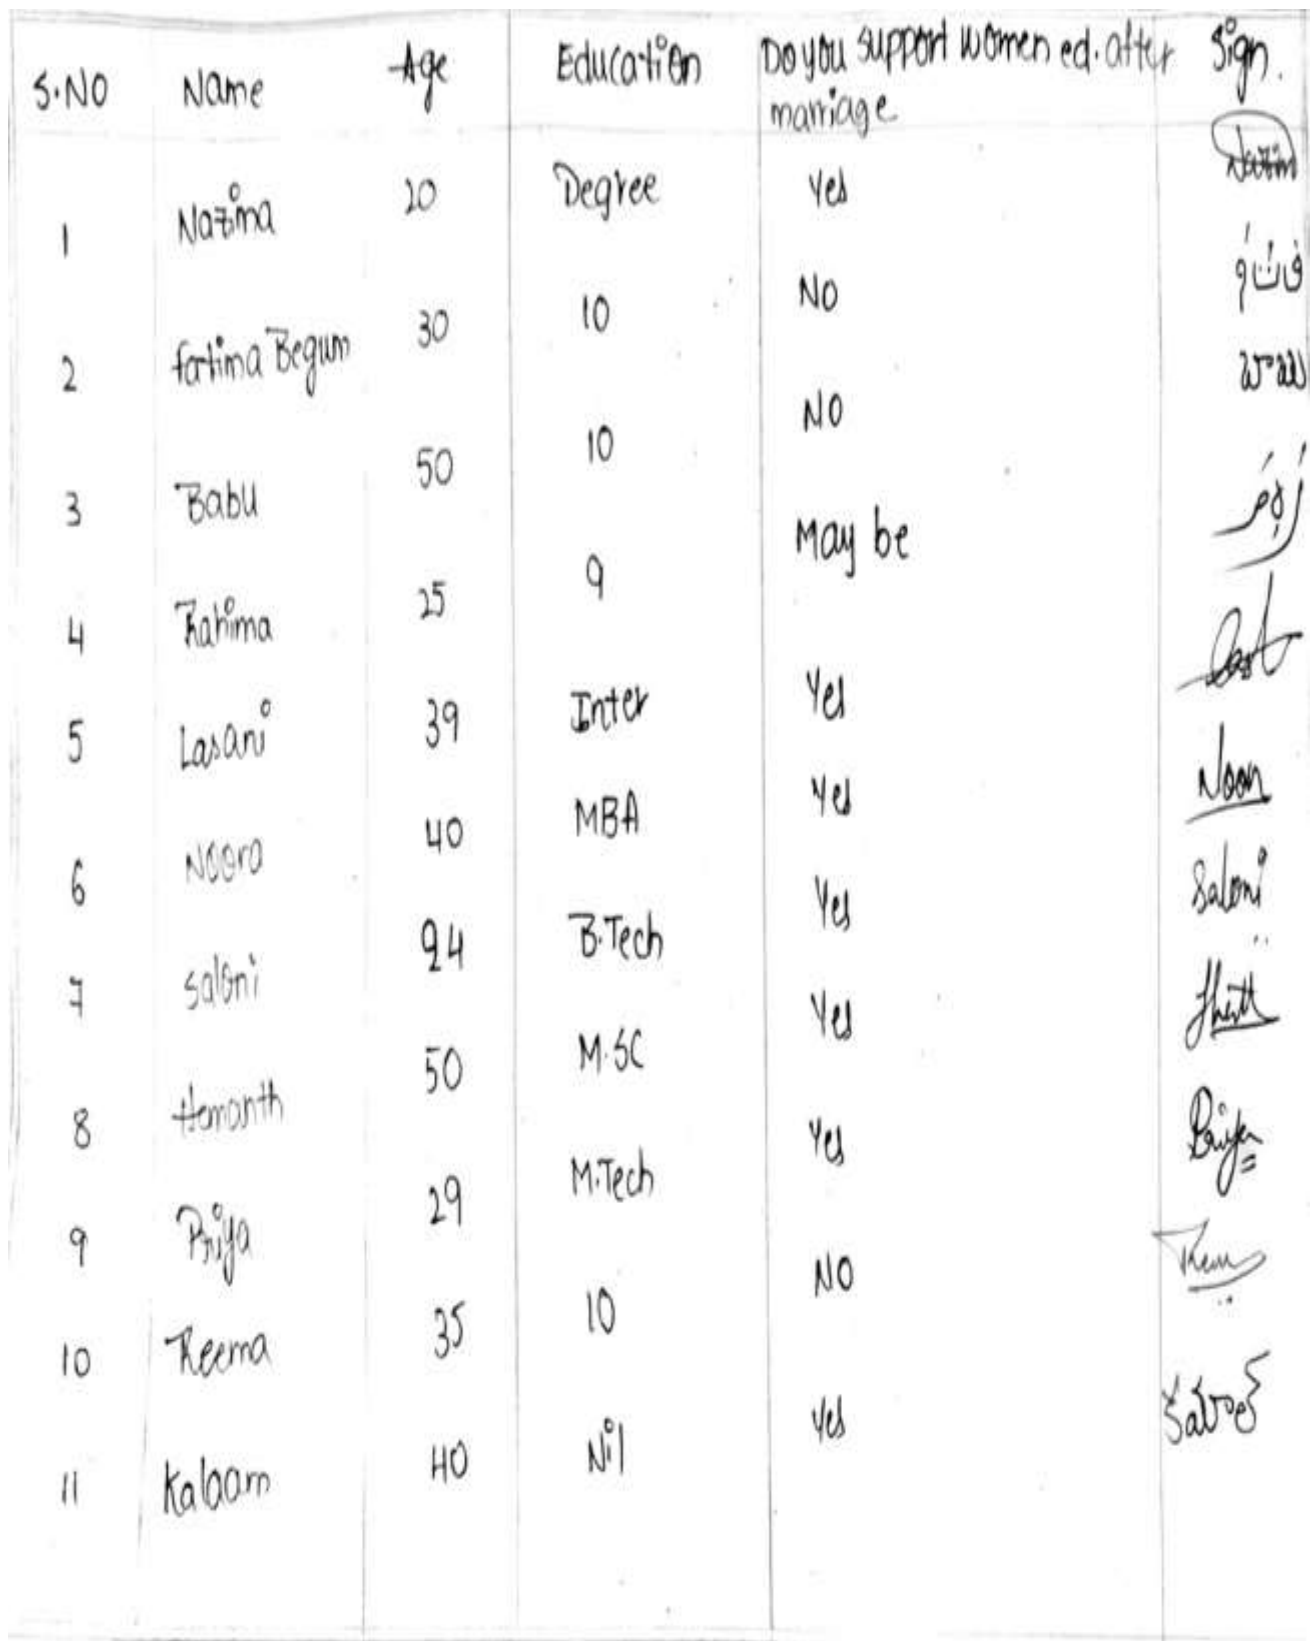 S.NO Name Age Education Do you support women ed. after marriage Sign.
1 Nazima 20 Degree Yes
2 fatima Begum 30 10 NO
3 Babu 50 10 NO బాబు
4 Rahima 25 9 May be
5 Lasani 39 Inter Yes
6 Noora 40 MBA Yes Noor
7 Saloni 24 B.Tech Yes Saloni
8 Hemanth 50 M.SC Yes
9 Priya 29 M.Tech Yes Priya
10 Reema 35 10 NO
11 Kalaam 40 Nil Yes